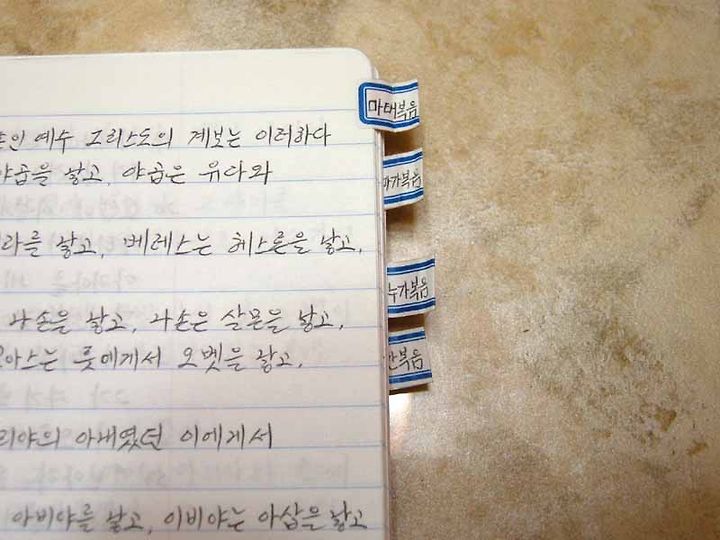 인 예수 그리스도의 계보는 이러하다
야곱을 낳고, 야곱은 유다와
라를 낳고, 베레스는 헤스론을 낳고,
나손을 낳고, 나손은 살몬을 낳고,
아스는 룻에게서 오벳을 낳고,
리야의 아내였던 이에게서
아비야를 낳고, 이비야는 아삽을 낳고
마태복음
마가복음
누가복음
한복음